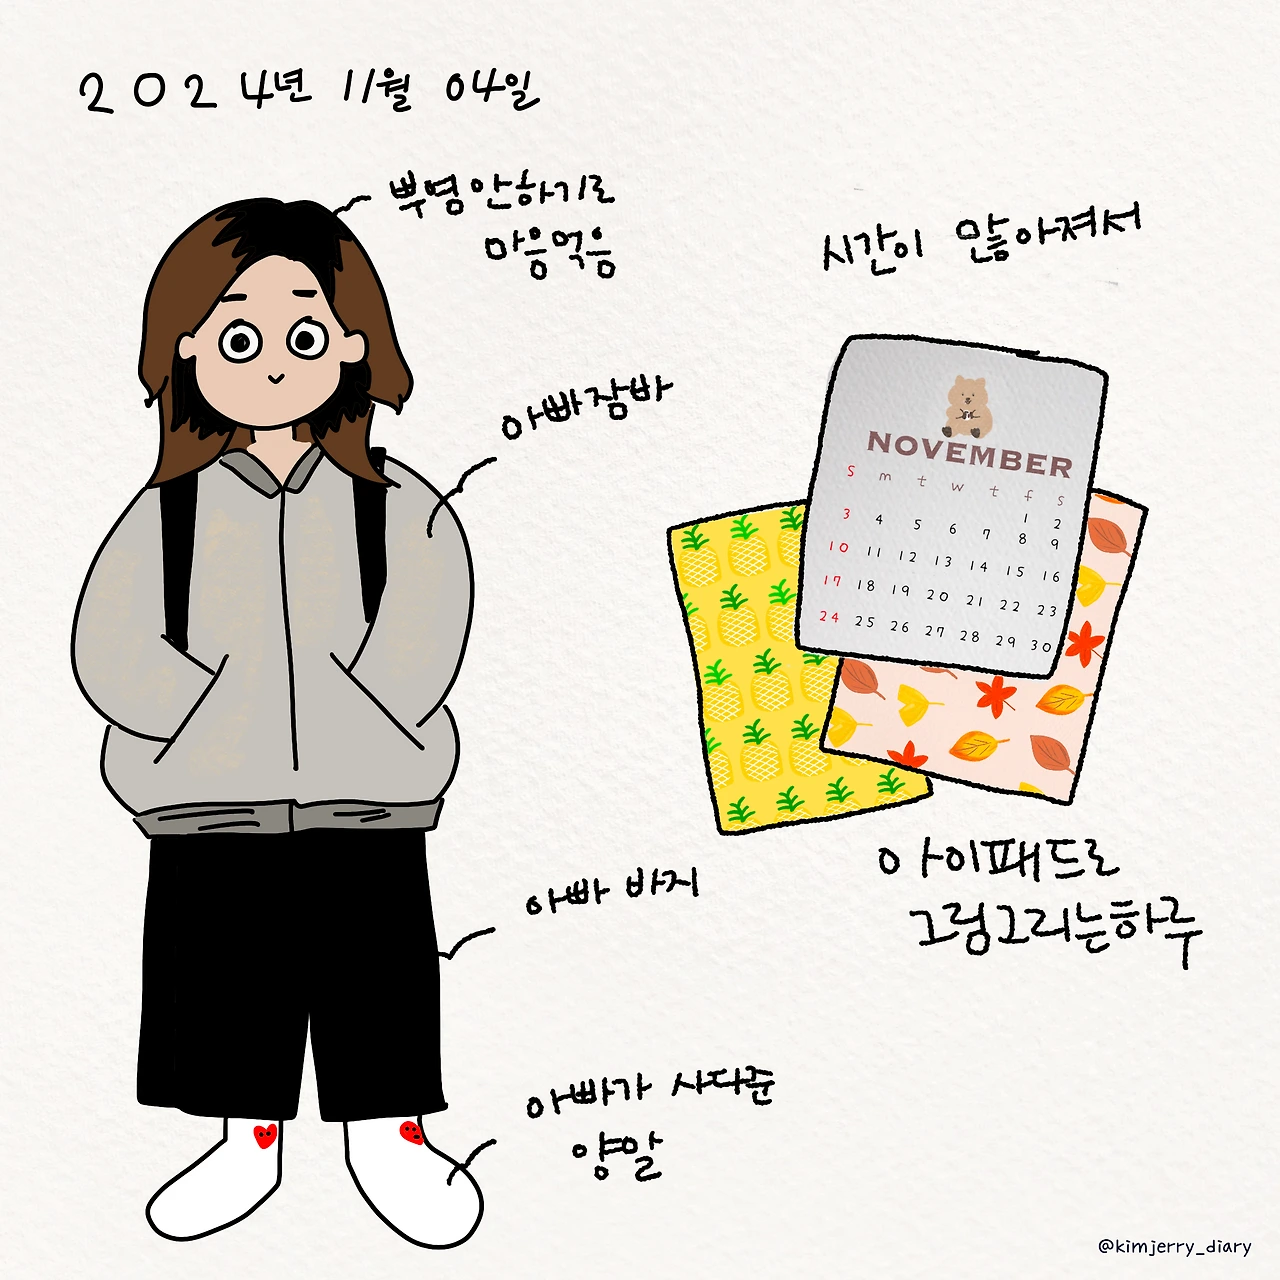 2024년 11월 04일
뿌염안하기로
마음먹음
아빠잠바
아빠 바지
아빠가 사다준
양말
시간이 많아져서
NOVEMBER
S m t w t f s
1 2
3 4 5 6 7 8 9
10 11 12 13 14 15 16
17 18 19 20 21 22 23
24 25 26 27 28 29 30
아이패드로
그림그리는하루
@kimjerry_diary